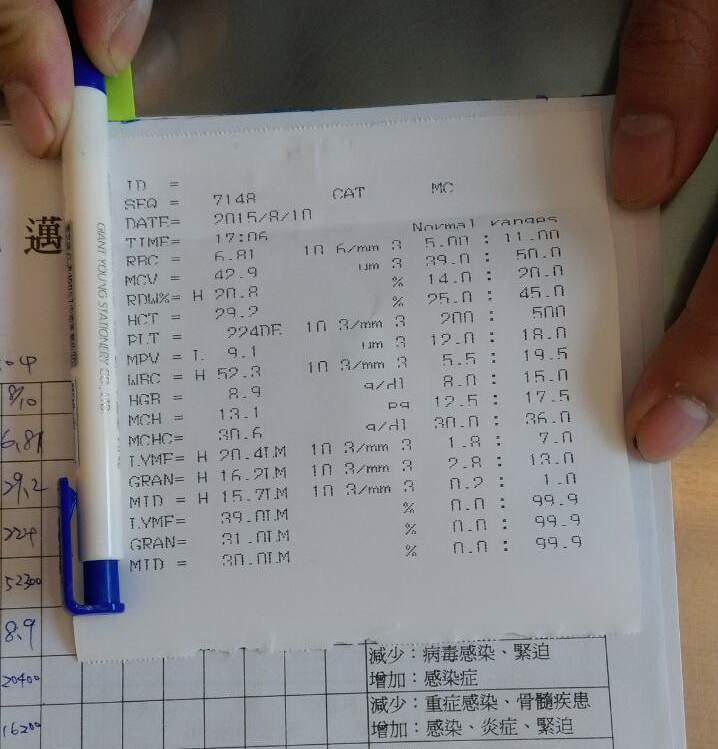 ID =
SEQ = 7148 CAT MC
DATE= 2015/8/10
TIME= 17:06 Normal ranges
RBC = 6.81 10 6/mm 3 5.00 : 11.00
MCV = 42.9 um 3 39.0 : 50.0
RDW%= H 20.8 % 14.0 : 20.0
HCT = 29.2 % 25.0 : 45.0
PLT = 224DE 10 3/mm 3 200 : 500
MPV = L 9.1 um 3 12.0 : 18.0
WBC = H 52.3 10 3/mm 3 5.5 : 19.5
HGB = 8.9 g/dl 8.0 : 15.0
MCH = 13.1 pg 12.5 : 17.5
MCHC= 30.6 g/dl 30.0 : 36.0
LYMF= H 20.4LM 10 3/mm 3 1.8 : 7.0
GRAN= H 16.2LM 10 3/mm 3 2.8 : 13.0
MID = H 15.7LM 10 3/mm 3 0.2 : 1.0
LYMF= 39.0LM % 0.0 : 99.9
GRAN= 31.0LM % 0.0 : 99.9
MID = 30.0LM % 0.0 : 99.9
邁
GIANT YOUNG STATIONERY CO.,
8/10
6.81
29.2
224
52300
8.9
20400
16200
減少：病毒感染、緊迫
增加：感染症
減少：重症感染、骨髓疾患
增加：感染、炎症、緊迫